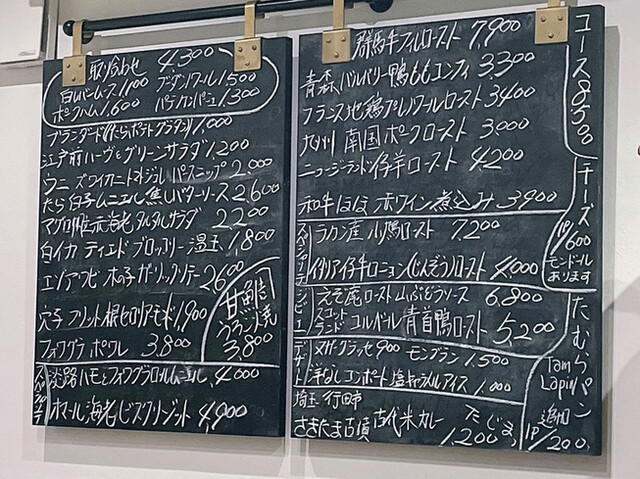 取り合わせ 4,300
白レバームース 1,100 ブーダンノワール 1,500
ポークハム 1,600 パテカンパーニュ 1,300
ブランダード(たらポテトグラタン) 1,000
江戸前ハーブとグリーンサラダ 1,200
ウニ ズワイガニ トマトジュレ パースニップ 2,000
たら白子ムニエル 焦しバターソース 2,600
マグロ 牡丹海老 タルタルサラダ 2,200
白イカ ティエド ブロッコリー 温玉 1,800
エゾアワビ 木の子 ガーリックソテー 2600
穴子フリット 根セロリ 1,900
フォワグラ ポワレ 3,800
甘鯛
ウロコ焼
3,800
スペシャリテ
淡路ハモとフォワグラ ロール 4,000
オマール海老 ビスク リゾット 4,900
群馬牛フィレロースト 7,900
青森 バルバリー鴨ももコンフィ 3,300
フランス地鶏プレノワールロースト 3400
九州 南国ポークロースト 3,000
ニュージーランド仔羊ロースト 4,200
和牛ほほ 赤ワイン煮込み 3,900
ラカン産 小鳩ロースト 7,200
イタリア仔羊ロニョン(じんぞう)ロースト 4,000
ジビエ
えぞ鹿ロースト 山ぶどうソース 6,800
スコットランド コルベール 青首鴨ロースト 5,200
デザート
ヌガーグラッセ 900 モンブラン 1,500
洋なし コンポート 塩キャラメルアイス 1,000
埼玉 行田
さきたま古墳 古代米カレー 1,200
コース8500
チーズ
1P/600
モンドール
あります
たむらパン
Tam
Lapin
追加
1P/200